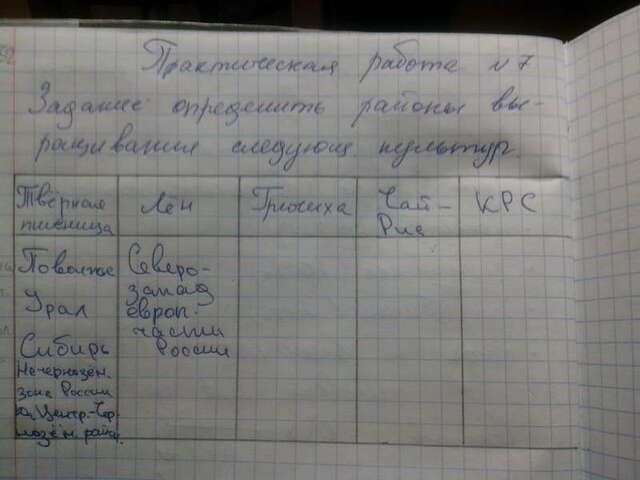 Практическая работа N 7
Задание: определить районы вы-
ращивания следующ. культур.
Твёрдая пшеница
Лён
Гречиха
Чай-
Рис
КРС
Поволжье
Урал
Сибирь
Нечернозём.
зона России
Центр.-Чер
нозём. район.
Северо-
запад
европ.
части
России